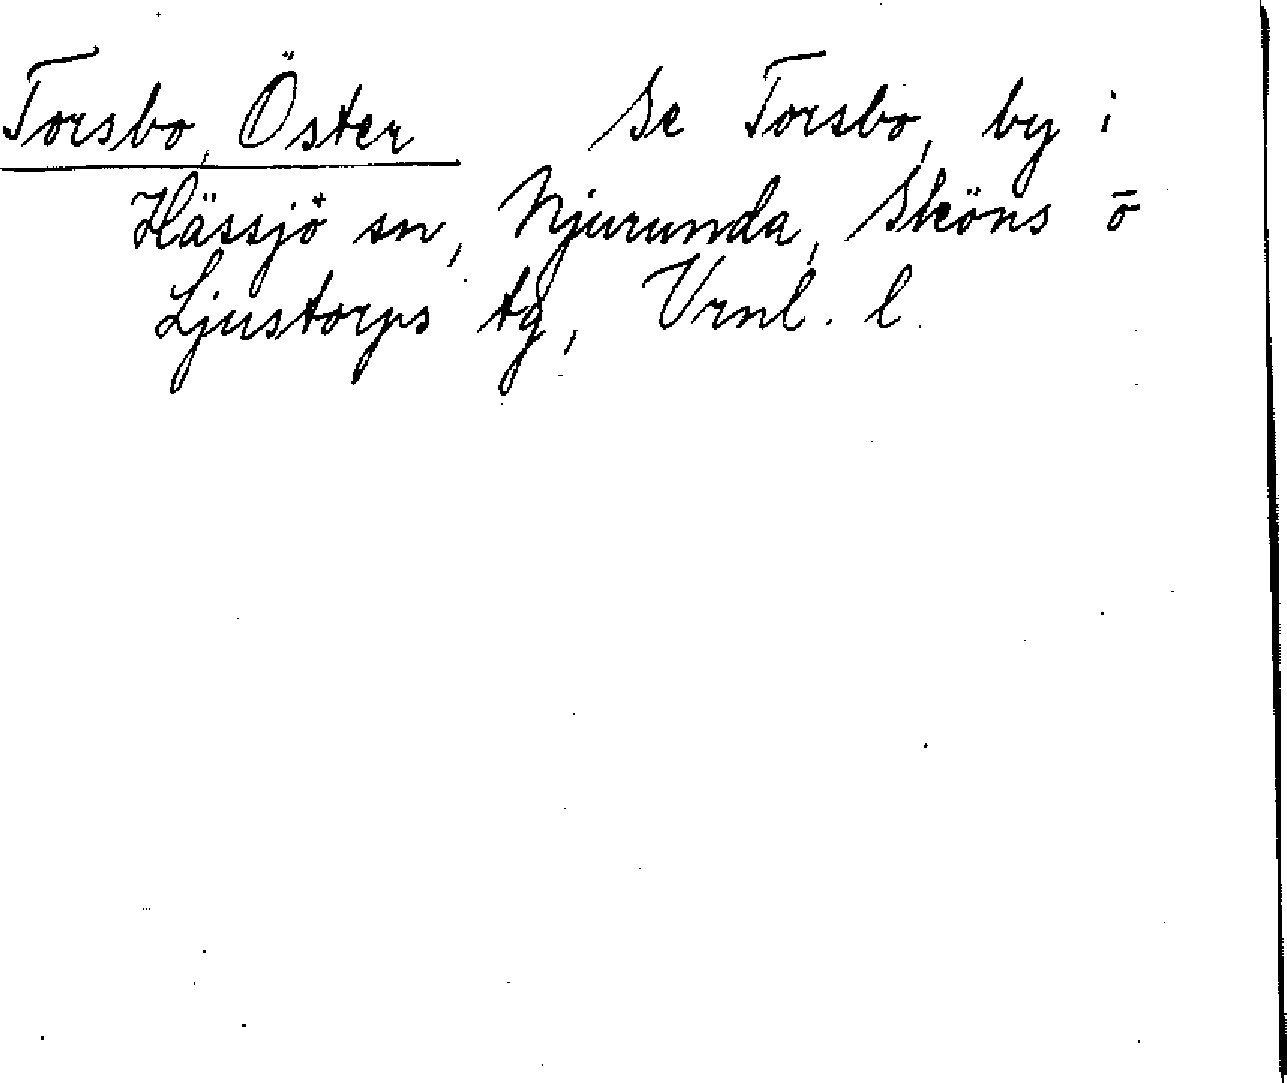 Torsbo, Öster Se Torsbo, by i
Hässjö sn, Njurunda, Sköns o
Ljustorps tg, Vrnl. l.